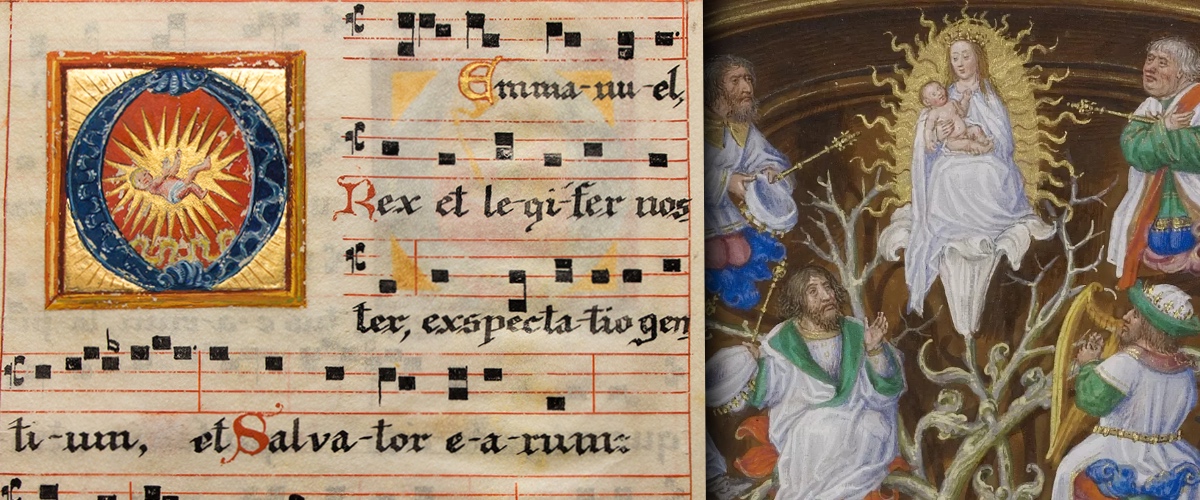 O Emma-nu-el,
Rex et le-gi-fer nos
ter, exspecta-tio gen
ti-um, et Salva-tor e-a-rum: